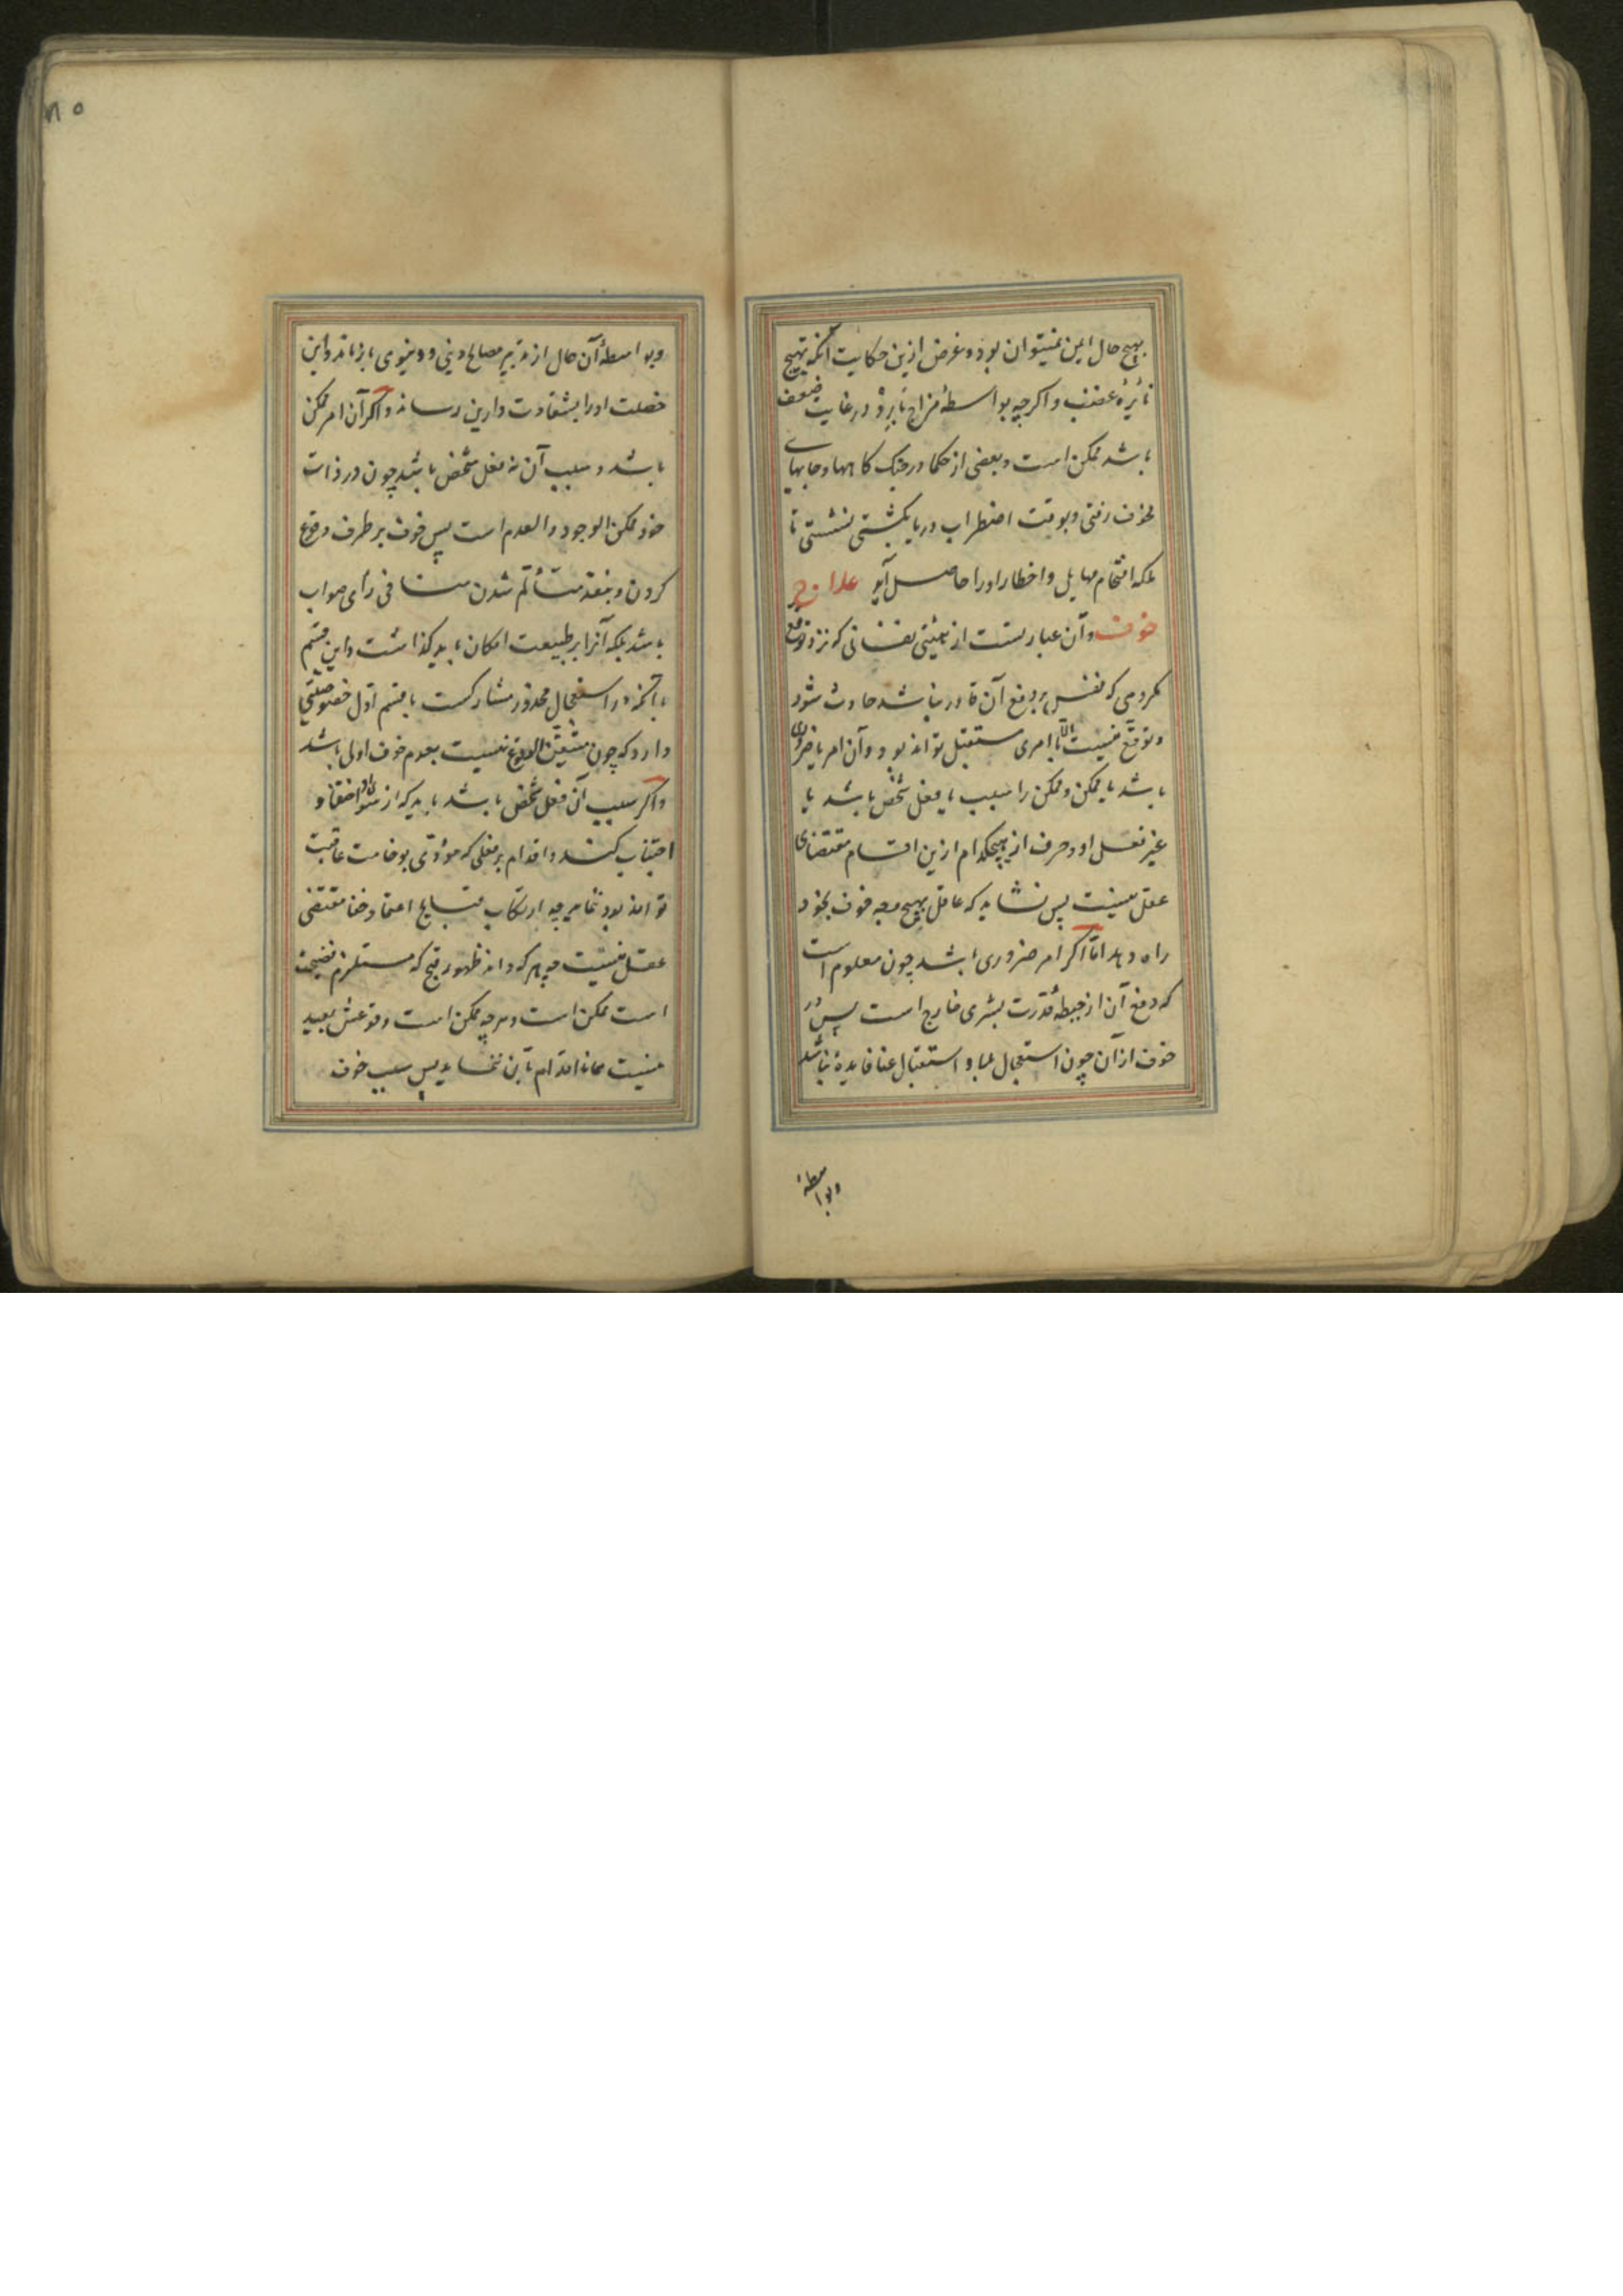 بهیچ حال ایمن نمیتوان بود و غرض ازین حکایت آنکه تهیج
نائرهٔ غضب و اکرچه بواسطهٔ مزاج نایره در غایت ضعف
باشد ممکن است و بعضی از حکما در جنک کاهها و جایهای
مخوف رفتی و بوقت اضطراب دریا بکشتی نشستی تا
ملکه اقتحام مهایل و اخطار او را حاصل آید علاج
خوف و آن عبارتست از هیئتی نفسانی که نزد توقع
مکروهی که نفس بر دفع آن قادر نباشد حادث شود
و توقع نیست الا با امری مستقبل تواند بود و آن امر یا ضروری
باشد یا ممکن و ممکن را سبب یا فعل شخص باشد یا
غیر فعل او و خوف از هیچکدام ازین اقسام مقتضای
عقل نیست پس نشاید که عاقل بهیچ وجه خوف بخود
راه دهد اما اکر امر ضروری باشد چون معلوم است
که دفع آن از حیطهٔ قدرت بشری خارج است پس در
خوف از آن چون استعجال بلا و استقبال عنا فایدهٔ نباشد
وبواسطهٔ
۸۵
و بواسطهٔ آن حال از تدبیر مصالح دینی و دنیوی بازماند و این
خصلت او را بشقاوت دارین رساند و اکر آن امر ممکن
باشد و سبب آن نه فعل شخص باشد چون در ذات
خود ممکن الوجود و العدم است پس خوف بر طرف وقوع
کردن و بنقد متألم شدن منافی رأی صواب
باشد بلکه آنرا بر طبیعت امکان باید کذاشت و این قسم
با آنکه در استعجال محذور مشارکست با قسم اول خصوصیتی
دارد که چون متیقن الوقوع نیست بعدم خوف اولی باشد
و اکر سبب آن فعل شخص باشد باید که از سوء اختیار
اجتناب کند و اقدام بر فعلی که مؤدی بوخامت عاقبت
تواند بود ننماید چه ارتکاب قبایح اعتماد خفا مقتضی
عقل نیست چه هر که داند ظهور قبح که مستلزم فضیحت
است ممکن است و هرچه ممکن است وقوعش بعید
نیست همانا اقدام بآن ننماید پس سبب خوف